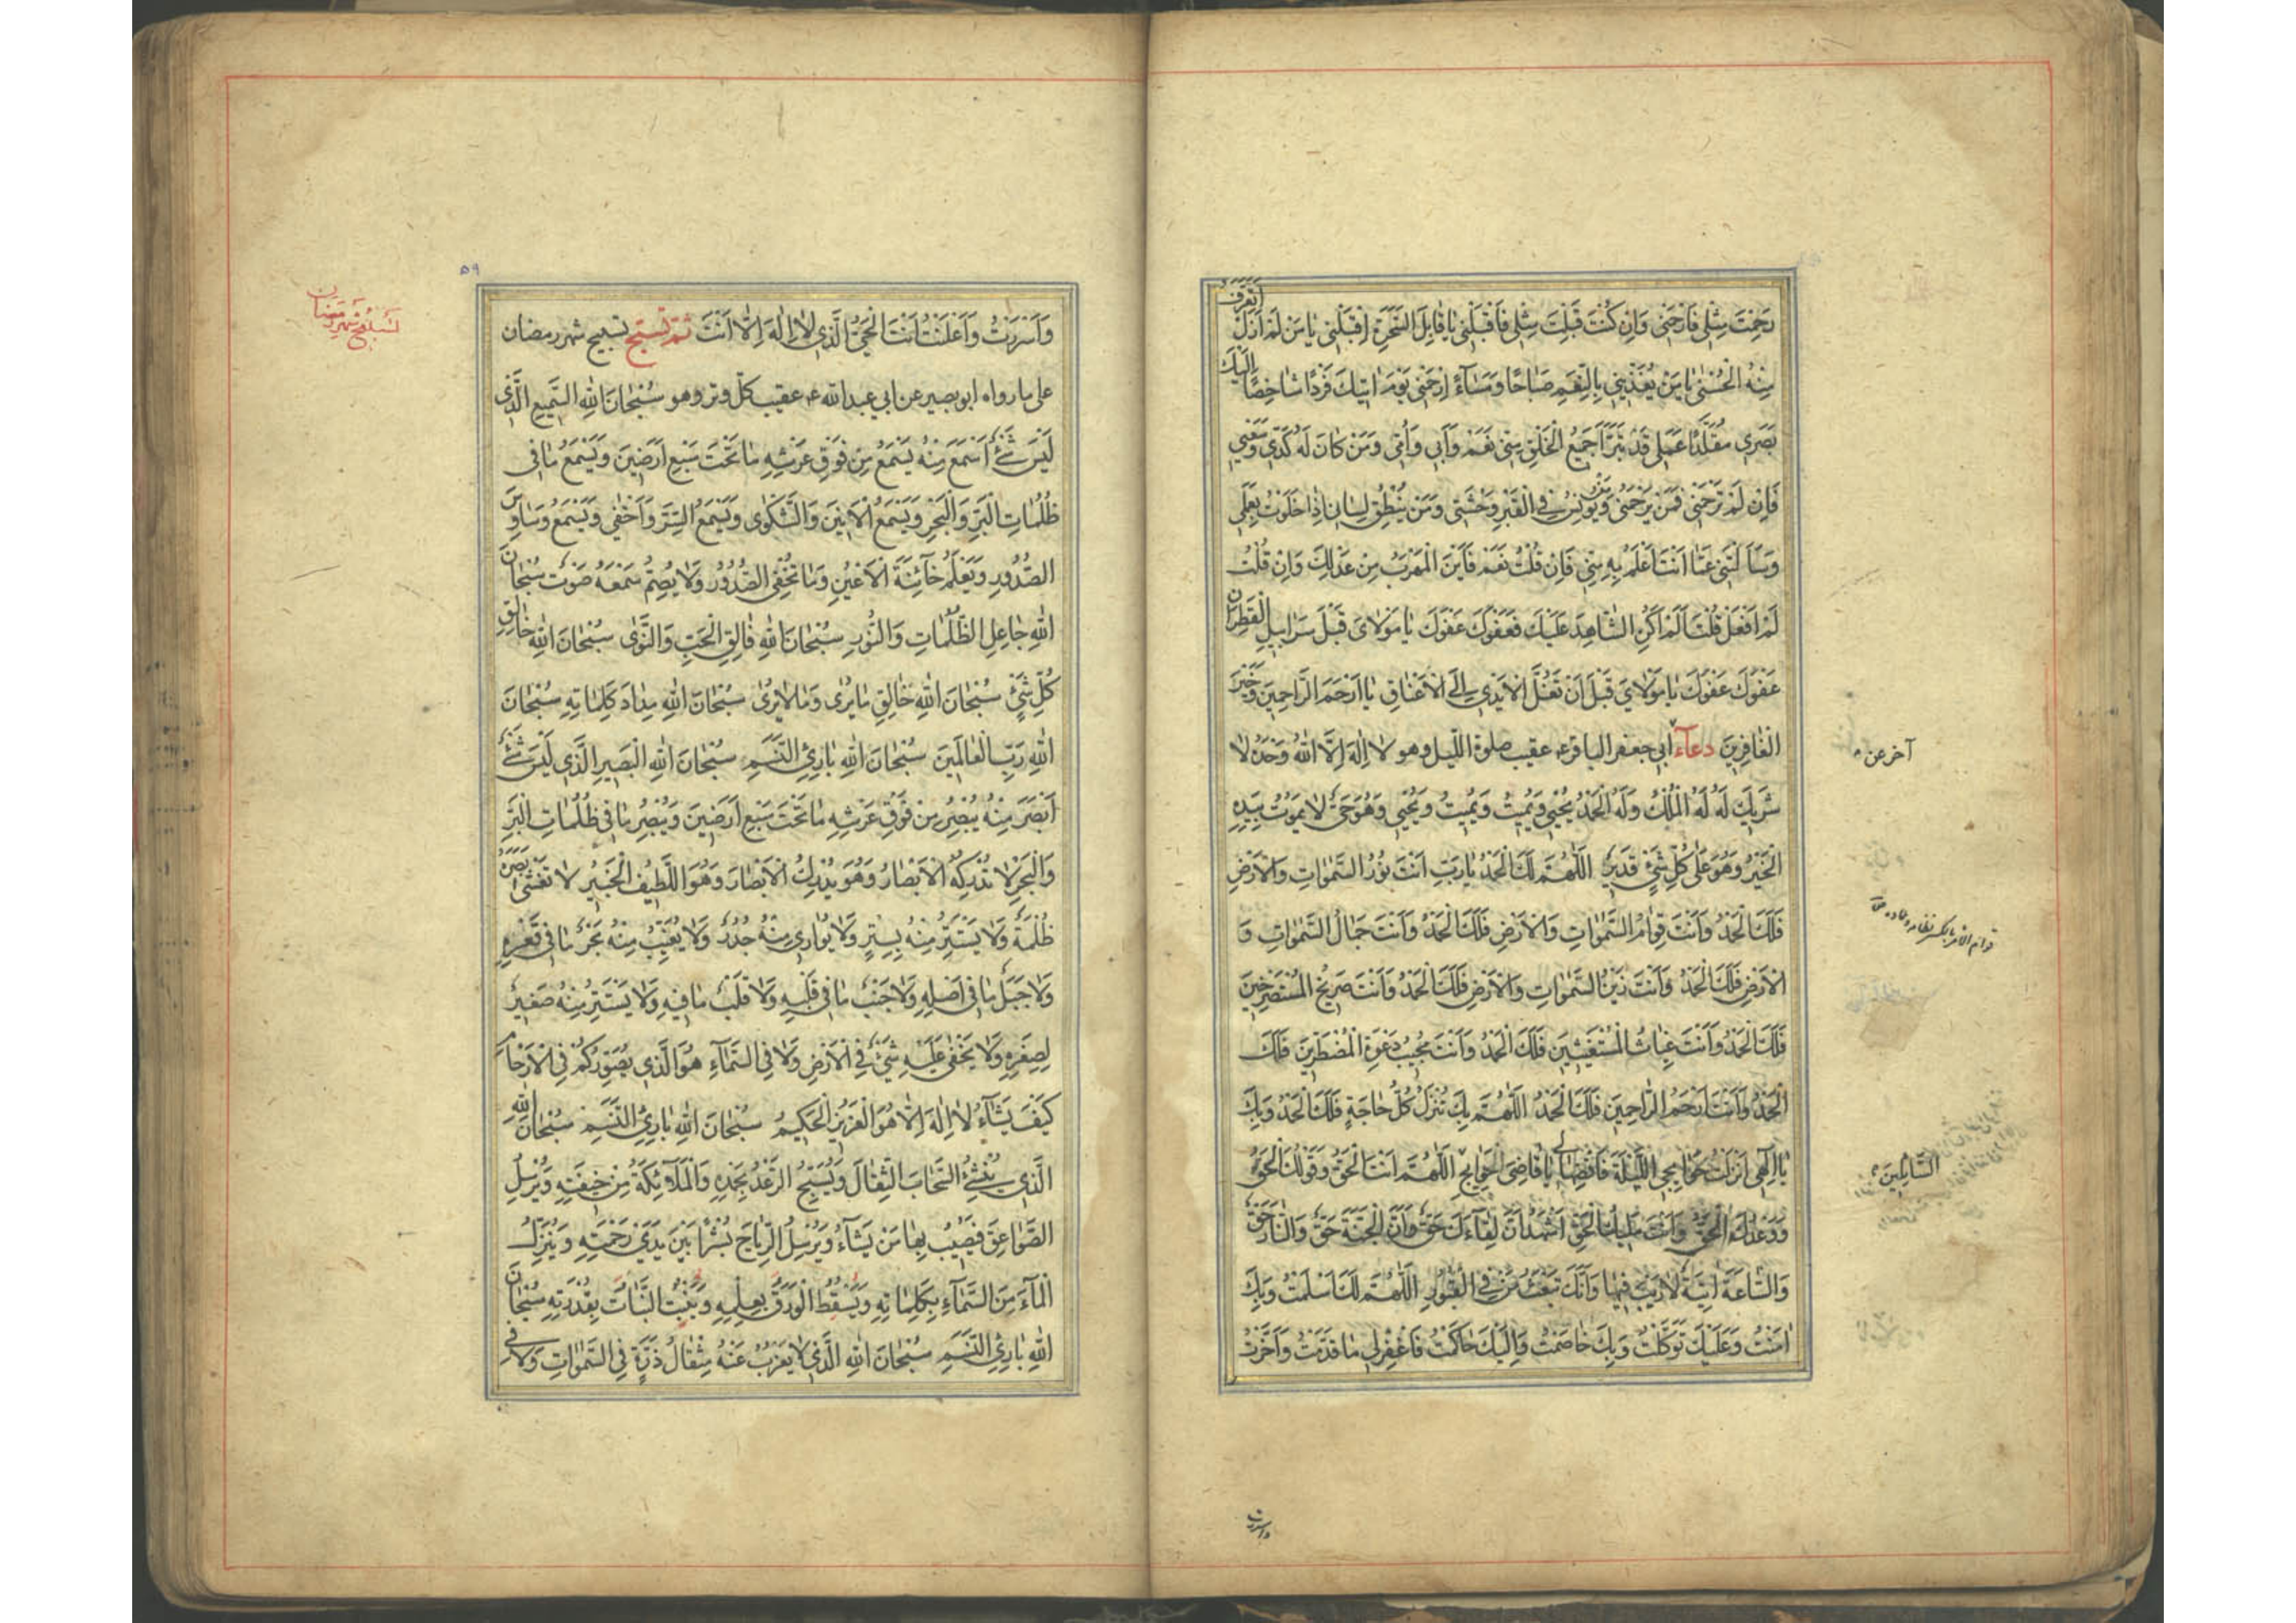 رَحِمْتَ مِثْلِي فَارْحَمْنِي وَاِنْ كُنْتَ قَبِلْتَ مِثْلِي فَاقْبَلْنِي يَا قَابِلَ السَّحَرَةِ اِقْبَلْنِي يَا مَنْ لَمْ اَزَلْ اَتَعَرَّفُ
مِنْهُ الْحُسْنٰى يَا مَنْ يُغَذِّينِي بِالنِّعَمِ صَبَاحًا وَمَسَاءً اِرْحَمْنِي يَوْمَ اٰتِيكَ فَرْدًا شَاخِصًا اِلَيْكَ
بَصَرِي مُقَلَّدًا عَمَلِي قَدْ تَبَرَّأَ جَمِيعُ الْخَلْقِ مِنِّي نَعَمْ وَاَبِي وَاُمِّي وَمَنْ كَانَ لَهُ كَدِّي وَسَعْيِي
فَاِنْ لَمْ تَرْحَمْنِي فَمَنْ يَرْحَمُنِي وَمَنْ يُونِسُ فِي الْقَبْرِ وَحْشَتِي وَمَنْ يُنْطِقُ لِسَانِي اِذَا خَلَوْتُ بِعَمَلِي
وَسَأَلْتَنِي عَمَّا اَنْتَ اَعْلَمُ بِهِ مِنِّي فَاِنْ قُلْتُ نَعَمْ فَاَيْنَ الْمَهْرَبُ مِنْ عَدْلِكَ وَاِنْ قُلْتُ
لَمْ اَفْعَلْ قُلْتَ اَلَمْ اَكُنِ الشَّاهِدَ عَلَيْكَ فَعَفْوَكَ عَفْوَكَ يَا مَوْلَايَ قَبْلَ سَرَابِيلِ الْقَطِرَانِ
عَفْوَكَ عَفْوَكَ يَا مَوْلَايَ قَبْلَ اَنْ تُغَلَّ الْاَيْدِي اِلَى الْاَعْنَاقِ يَا اَرْحَمَ الرَّاحِمِينَ وَخَيْرَ
الْغَافِرِينَ دعاء اَبِي جعفر الباقر ع عقيب صلوة اللّيل وهو لَا اِلٰهَ اِلَّا اللّٰهُ وَحْدَهُ لَا
آخر عن
شَرِيكَ لَهُ لَهُ الْمُلْكُ وَلَهُ الْحَمْدُ يُحْيِي وَيُمِيتُ وَيُمِيتُ وَيُحْيِي وَهُوَ حَيٌّ لَا يَمُوتُ بِيَدِهِ
الْخَيْرُ وَهُوَ عَلٰى كُلِّ شَيْءٍ قَدِيرٌ اَللّٰهُمَّ لَكَ الْحَمْدُ يَا رَبِّ اَنْتَ نُورُ السَّمٰوَاتِ وَالْاَرْضِ
فَلَكَ الْحَمْدُ وَاَنْتَ قِوَامُ السَّمٰوَاتِ وَالْاَرْضِ فَلَكَ الْحَمْدُ وَاَنْتَ جَمَالُ السَّمٰوَاتِ وَ
قوام الامر بالكسر نظامه وعماده
الْاَرْضِ فَلَكَ الْحَمْدُ وَاَنْتَ زَيْنُ السَّمٰوَاتِ وَالْاَرْضِ فَلَكَ الْحَمْدُ وَاَنْتَ صَرِيخُ الْمُسْتَصْرِخِينَ
فَلَكَ الْحَمْدُ وَاَنْتَ غِيَاثُ الْمُسْتَغِيثِينَ فَلَكَ الْحَمْدُ وَاَنْتَ مُجِيبُ دَعْوَةِ الْمُضْطَرِّينَ فَلَكَ
الْحَمْدُ وَاَنْتَ اَرْحَمُ الرَّاحِمِينَ فَلَكَ الْحَمْدُ اَللّٰهُمَّ بِكَ تُنْزَلُ كُلُّ حَاجَةٍ فَلَكَ الْحَمْدُ وَبِكَ
يَا اِلٰهِي اَنْزَلْتُ حَوَائِجِي اللَّيْلَةَ فَاقْضِهَا لِي يَا قَاضِيَ الْحَوَائِجِ اَللّٰهُمَّ اَنْتَ الْحَقُّ وَقَوْلُكَ الْحَقُّ
السَّائِلِينَ
وَوَعْدُكَ الْحَقُّ وَاَنْتَ مَلِيكُ الْحَقِّ اَشْهَدُ اَنَّ لِقَاءَكَ حَقٌّ وَاَنَّ الْجَنَّةَ حَقٌّ وَالنَّارَ حَقٌّ
وَالسَّاعَةَ اٰتِيَةٌ لَا رَيْبَ فِيهَا وَاَنَّكَ تَبْعَثُ مَنْ فِي الْقُبُورِ اَللّٰهُمَّ لَكَ اَسْلَمْتُ وَبِكَ
اٰمَنْتُ وَعَلَيْكَ تَوَكَّلْتُ وَبِكَ خَاصَمْتُ وَاِلَيْكَ حَاكَمْتُ فَاغْفِرْ لِي مَا قَدَّمْتُ وَاَخَّرْتُ
واسررت
٥٩
وَاَسْرَرْتُ وَاَعْلَنْتُ اَنْتَ الْحَيُّ الَّذِي لَا اِلٰهَ اِلَّا اَنْتَ ثُمَّ تُسَبِّح تسبيح شهر رمضان
تسبيح شهر رمضان
على ما رواه ابو بصير عن ابي عبد اللّه ع عقيب كلّ وتر وهو سُبْحَانَ اللّٰهِ السَّمِيعِ الَّذِي
لَيْسَ شَيْءٌ اَسْمَعَ مِنْهُ يَسْمَعُ مِنْ فَوْقِ عَرْشِهِ مَا تَحْتَ سَبْعِ اَرَضِينَ وَيَسْمَعُ مَا فِي
ظُلُمَاتِ الْبَرِّ وَالْبَحْرِ وَيَسْمَعُ الْاَنِينَ وَالشَّكْوٰى وَيَسْمَعُ السِّرَّ وَاَخْفٰى وَيَسْمَعُ وَسَاوِسَ
الصُّدُورِ وَيَعْلَمُ خَائِنَةَ الْاَعْيُنِ وَمَا تُخْفِي الصُّدُورُ وَلَا يُصِمُّ سَمْعَهُ صَوْتٌ سُبْحَانَ
اللّٰهِ جَاعِلِ الظُّلُمَاتِ وَالنُّورِ سُبْحَانَ اللّٰهِ فَالِقِ الْحَبِّ وَالنَّوٰى سُبْحَانَ اللّٰهِ خَالِقِ
كُلِّ شَيْءٍ سُبْحَانَ اللّٰهِ خَالِقِ مَا يُرٰى وَمَا لَا يُرٰى سُبْحَانَ اللّٰهِ مِدَادَ كَلِمَاتِهِ سُبْحَانَ
اللّٰهِ رَبِّ الْعَالَمِينَ سُبْحَانَ اللّٰهِ بَارِئِ النَّسَمِ سُبْحَانَ اللّٰهِ الْبَصِيرِ الَّذِي لَيْسَ شَيْءٌ
اَبْصَرَ مِنْهُ يُبْصِرُ مِنْ فَوْقِ عَرْشِهِ مَا تَحْتَ سَبْعِ اَرَضِينَ وَيُبْصِرُ مَا فِي ظُلُمَاتِ الْبَرِّ
وَالْبَحْرِ لَا تُدْرِكُهُ الْاَبْصَارُ وَهُوَ يُدْرِكُ الْاَبْصَارَ وَهُوَ اللَّطِيفُ الْخَبِيرُ لَا تَغْشٰى بَصَرَهُ
ظُلْمَةٌ وَلَا يَسْتَتِرُ مِنْهُ بِسِتْرٍ وَلَا يُوَارِي مِنْهُ جُدُرٌ وَلَا يُغَيِّبُ مِنْهُ بَحْرٌ مَا فِي قَعْرِهِ
وَلَا جَبَلٌ مَا فِي اَصْلِهِ وَلَا جَنْبٌ مَا فِي قَلْبِهِ وَلَا قَلْبٌ مَا فِيهِ وَلَا يَسْتَتِرُ مِنْهُ صَغِيرٌ
لِصِغَرِهِ وَلَا يَخْفٰى عَلَيْهِ شَيْءٌ فِي الْاَرْضِ وَلَا فِي السَّمَاءِ هُوَ الَّذِي يُصَوِّرُكُمْ فِي الْاَرْحَامِ
كَيْفَ يَشَاءُ لَا اِلٰهَ اِلَّا هُوَ الْعَزِيزُ الْحَكِيمُ سُبْحَانَ اللّٰهِ بَارِئِ النَّسَمِ سُبْحَانَ اللّٰهِ
الَّذِي يُنْشِئُ السَّحَابَ الثِّقَالَ وَيُسَبِّحُ الرَّعْدُ بِحَمْدِهِ وَالْمَلَائِكَةُ مِنْ خِيفَتِهِ وَيُرْسِلُ
الصَّوَاعِقَ فَيُصِيبُ بِهَا مَنْ يَشَاءُ وَيُرْسِلُ الرِّيَاحَ بُشْرًا بَيْنَ يَدَيْ رَحْمَتِهِ وَيُنَزِّلُ
الْمَاءَ مِنَ السَّمَاءِ بِكَلِمَاتِهِ وَيَسْقُطُ الْوَرَقُ بِعِلْمِهِ وَيُنْبِتُ النَّبَاتَ بِقُدْرَتِهِ سُبْحَانَ
اللّٰهِ بَارِئِ النَّسَمِ سُبْحَانَ اللّٰهِ الَّذِي لَا يَعْزُبُ عَنْهُ مِثْقَالُ ذَرَّةٍ فِي السَّمٰوَاتِ وَلَا فِي